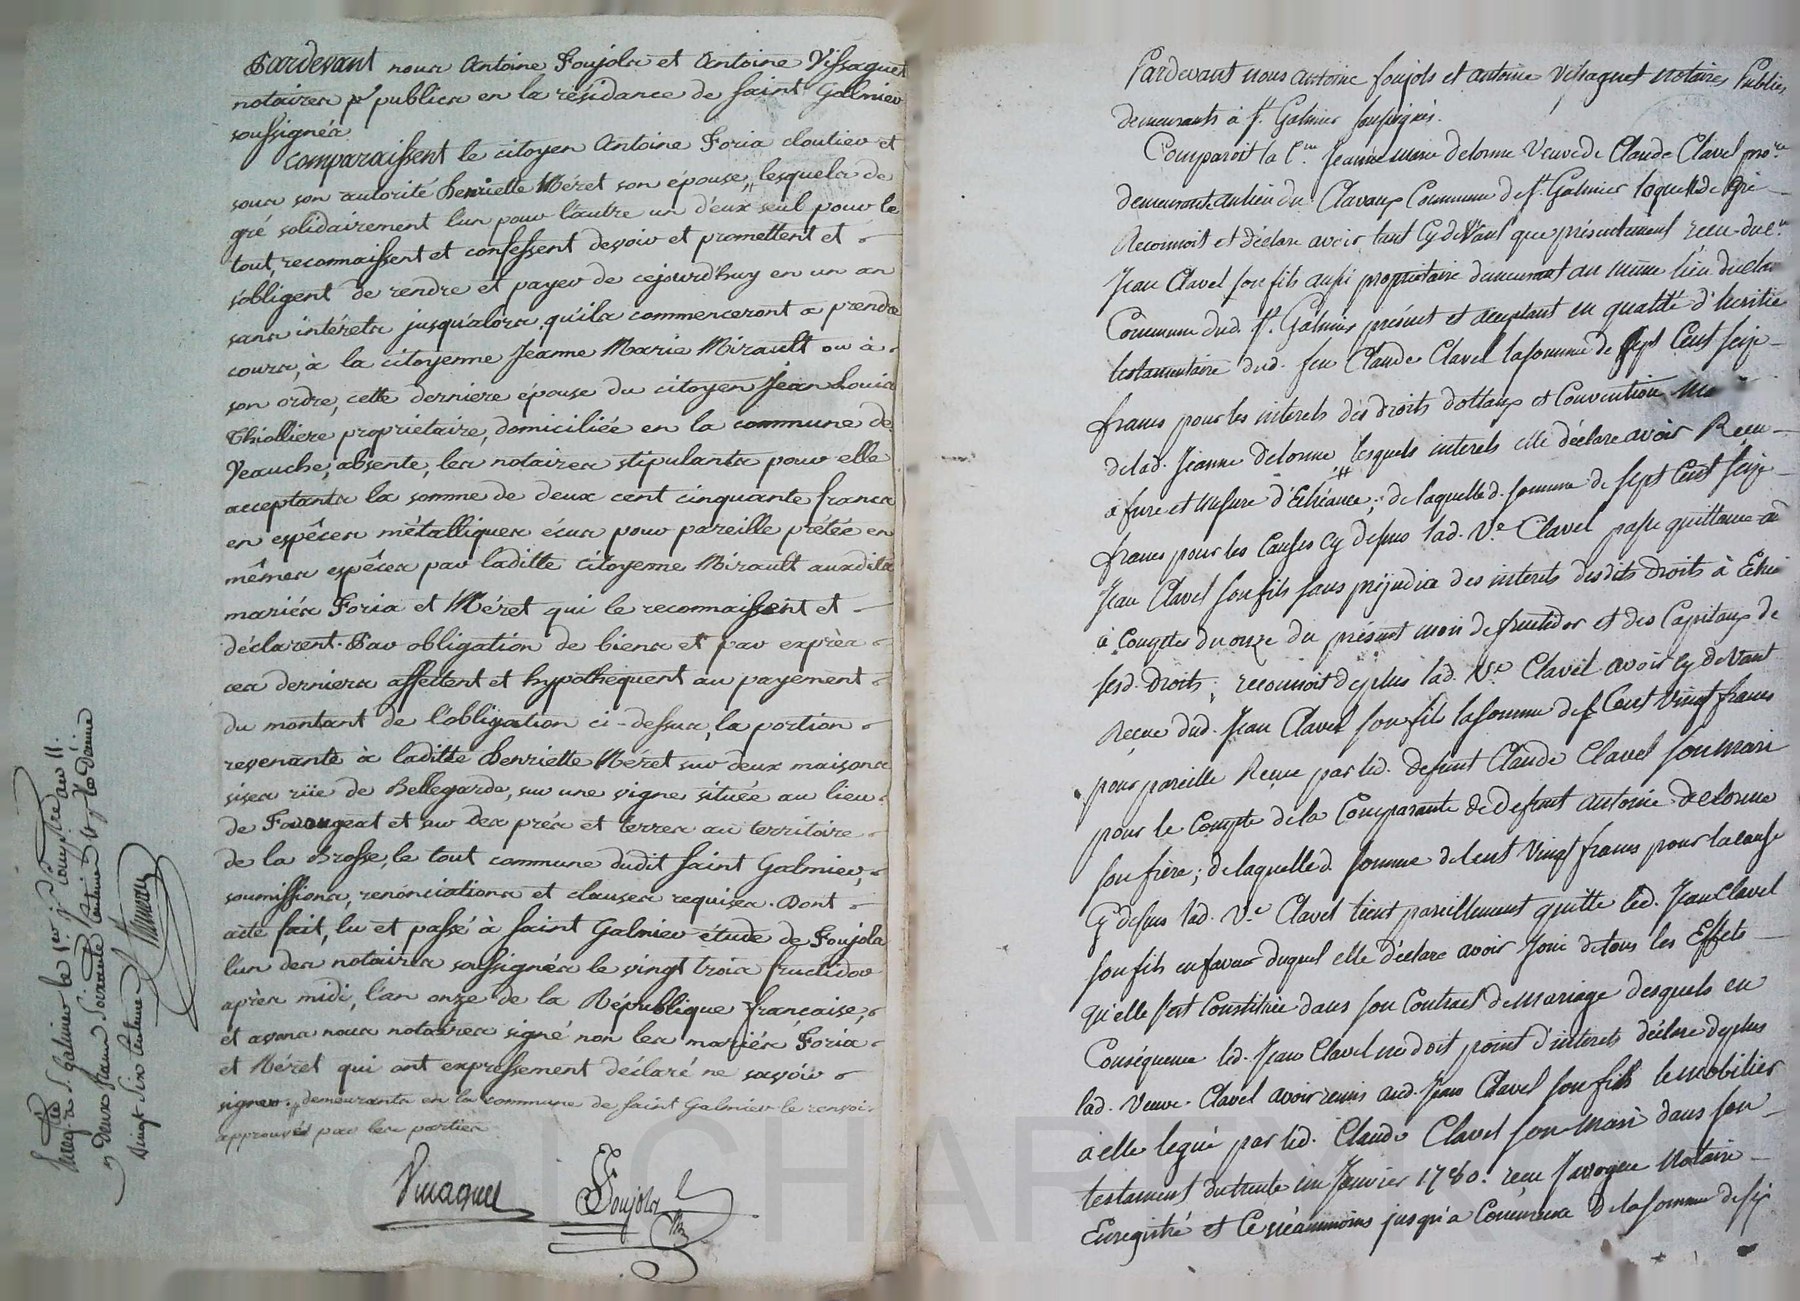 Pardevant nous Antoine Foujols et Antoine Vissaguet
notaires publics en la résidance de saint Galmier
soussignés
comparaissent le citoyen Antoine Foria cloutier et
sous son autorité Benriette Méret son épouse, lesquels de
gré solidairement l'un pour l'autre un d'eux seul pour le
tout, reconnaissent et confessent devoir et promettent et
s'obligent de rendre et payer de cejourd'huy en un an
sans intérêts jusqu'alors, qu'ils commenceront a prendre
cours, à la citoyenne Jeanne Marie Mirault ou à
son ordre, cette derniere épouse du citoyen Jean Louis
Thiolliere propriétaire, domiciliée en la commune de
Veauche, absente, les notaires stipulants pour elle
acceptants la somme de deux cent cinquante francs
en espêces métalliques écus pour pareille prétée en
mêmes espêces par laditte citoyenne Mirault auxdits
mariés Foria et Méret qui le reconnaissent et
déclarent. Par obligation de biens et par exprès
ces derniers affectent et hypothéquent au payement
du montant de l'obligation ci-dessus, la portion
revenante à laditte Benriette Méret sur deux maisons
sises rüe de Bellegarde, sur une vigne située au lieu
de Fontugeat et sur des prés et terres au territoire
de la Brosse, le tout commune dudit saint Galmier,
soumissions, renonciations et clauses requises. Dont
acte fait, lu et passé à saint Galmier étude de Foujols
l'un des notaires soussignés le vingt trois fructidor
après midi, l'an onze de la République française,
et avons nous notaires signé non les mariés Foria
et Méret qui ont expressement déclaré ne savoir
signer. demeurants en la commune de saint Galmier le renvoi
approuvés par les parties
Vissaguet Foujols
Enreg. à St. Galmier le 1er j. compre. an 11.
deux francs soixante centimes
vingt six centimes
Pardevant nous Antoine foujols et antoine vissaguet notaires Publics
demeurants à St. Galmier soussignés.
Comparoit la Cne. Jeanne Marie Delorme Veuve de Claude Clavel pro.re
demeurante au lieu du Clavaux Commune de St. Galmier laquelle de gré
Reconnoit et déclare avoir tant Cy devant que présentement recu du cn.
Jean Clavel son fils aussi propriétaire demeurant au même lieu du
Commune dud. St. Galmier présent et acceptant en qualité d'héritier
testamentaire dud. feu Claude Clavel la somme de sept Cent seize
francs pour les interets des droits dottaux et Convention
de lad. Jeanne delorme lesquels interets elle déclare avoir Recu
à fure et Mesure d'Echéance; de laquelle d. somme de sept Cent seize
francs pour les Causes Cy dessus lad. Ve. Clavel passe quittance à
Jean Clavel son fils sans préjudice des interets desdits droits à Echoir
à Compter du onze du présent mois de fructidor et des Capitaux de
sesd. droits; reconnoit de plus lad. Ve. Clavel avoir cy devant
Reçue dud. Jean Clavel son fils la somme de Cent vingt francs
pour pareille Recue par led. defunt Claude Clavel son mari
pour le Compte de la Comparante de defunt antoine Delorme
son frère; de laquelle d. somme de Cent vingt francs pour la cause
Cy dessus lad. Ve. Clavel tient pareillement quitte led. Jean Clavel
son fils en faveur duquel elle déclare avoir joui de tous les Effets
qu'elle s'est Constituée dans son Contrat de mariage desquels en
Conséquence led. Jean Clavel ne doit point d'interets déclare de plus
lad. veuve Clavel avoir remis aud. Jean Clavel son fils le mobilier
à elle legué par led. Claude Clavel son mari dans son
testament du trente un Janvier 1780. recu Javogue Notaire
Enregistré et Ce néanmoins jusqu'a Concurrence de la somme de six